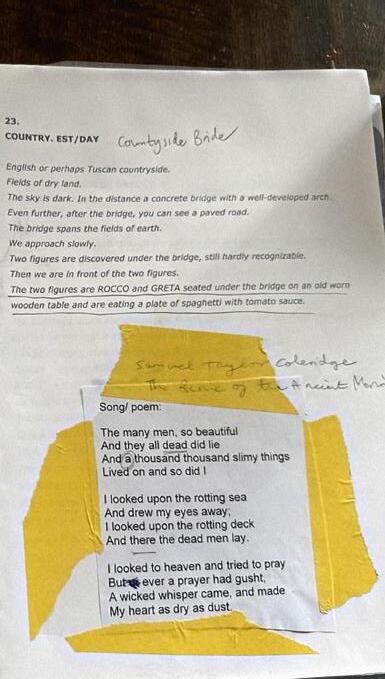 23.
COUNTRY. EST/DAY Countyside Bride
English or perhaps Tuscan countryside.
Fields of dry land.
The sky is dark. In the distance a concrete bridge with a well-developed arch.
Even further, after the bridge, you can see a paved road.
The bridge spans the fields of earth.
We approach slowly.
Two figures are discovered under the bridge, still hardly recognizable.
Then we are in front of the two figures.
The two figures are ROCCO and GRETA seated under the bridge on an old worn
wooden table and are eating a plate of spaghetti with tomato sauce.
Samuel Taylor Coleridge
The Rime of the Ancient
Song/ poem:
The many men, so beautiful
And they all dead did lie
And a thousand thousand slimy things
Lived on and so did I
I looked upon the rotting sea
And drew my eyes away;
I looked upon the rotting deck
And there the dead men lay.
I looked to heaven and tried to pray
But ever a prayer had gusht,
A wicked whisper came, and made
My heart as dry as dust.